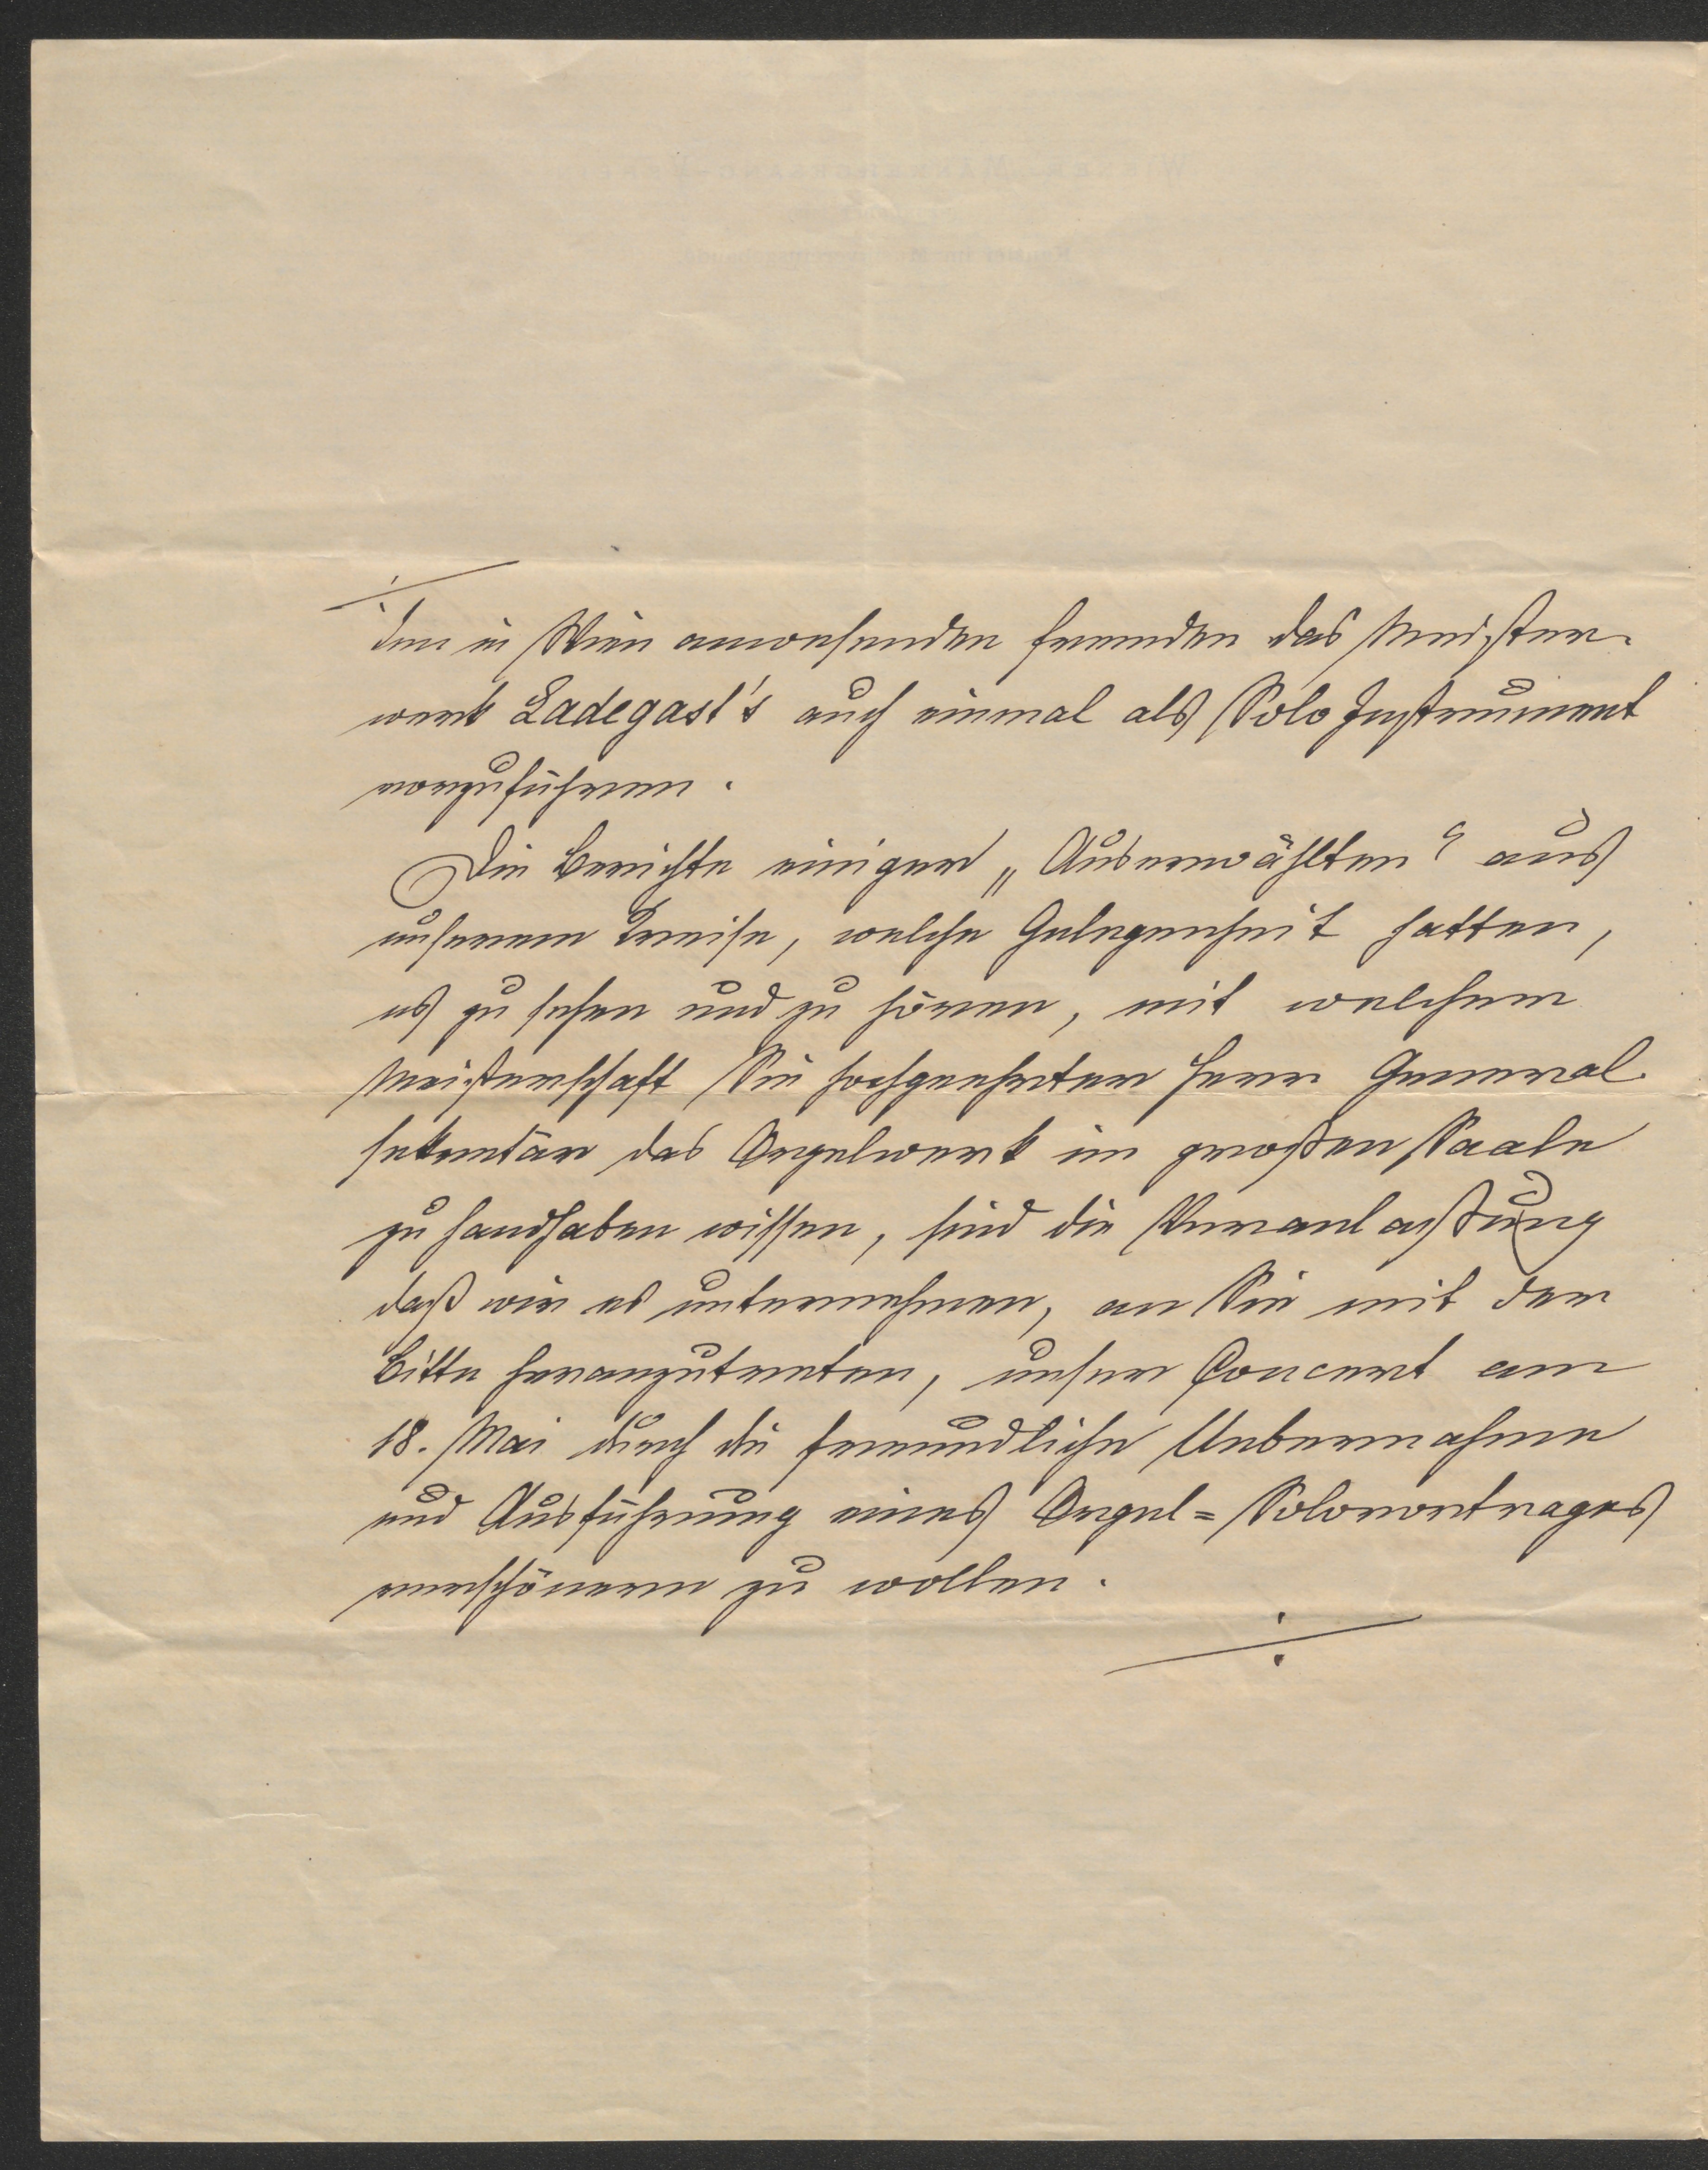 den in Wien anwesenden Fremden das Meister-
werk Ladegast's auch einmal als Solo Instrument
vorzuführen.
Die Berichte einiger „Auserwählten“ aus
unserem Kreise, welche Gelegenheit hatten,
es zu sehen und zu hören, mit welcher
Meisterschaft Sie hochgeehrter Herr General
sekretär das Orgelwerk im großen Saale
zu handhaben wissen, sind die Veranlassung
daß wir es unternehmen, an Sie mit der
Bitte heranzutreten, unser Concert am
18. Mai durch die freundliche Uebernahme
und Ausführung eines Orgel=Solovortrages
verschönern zu wollen.